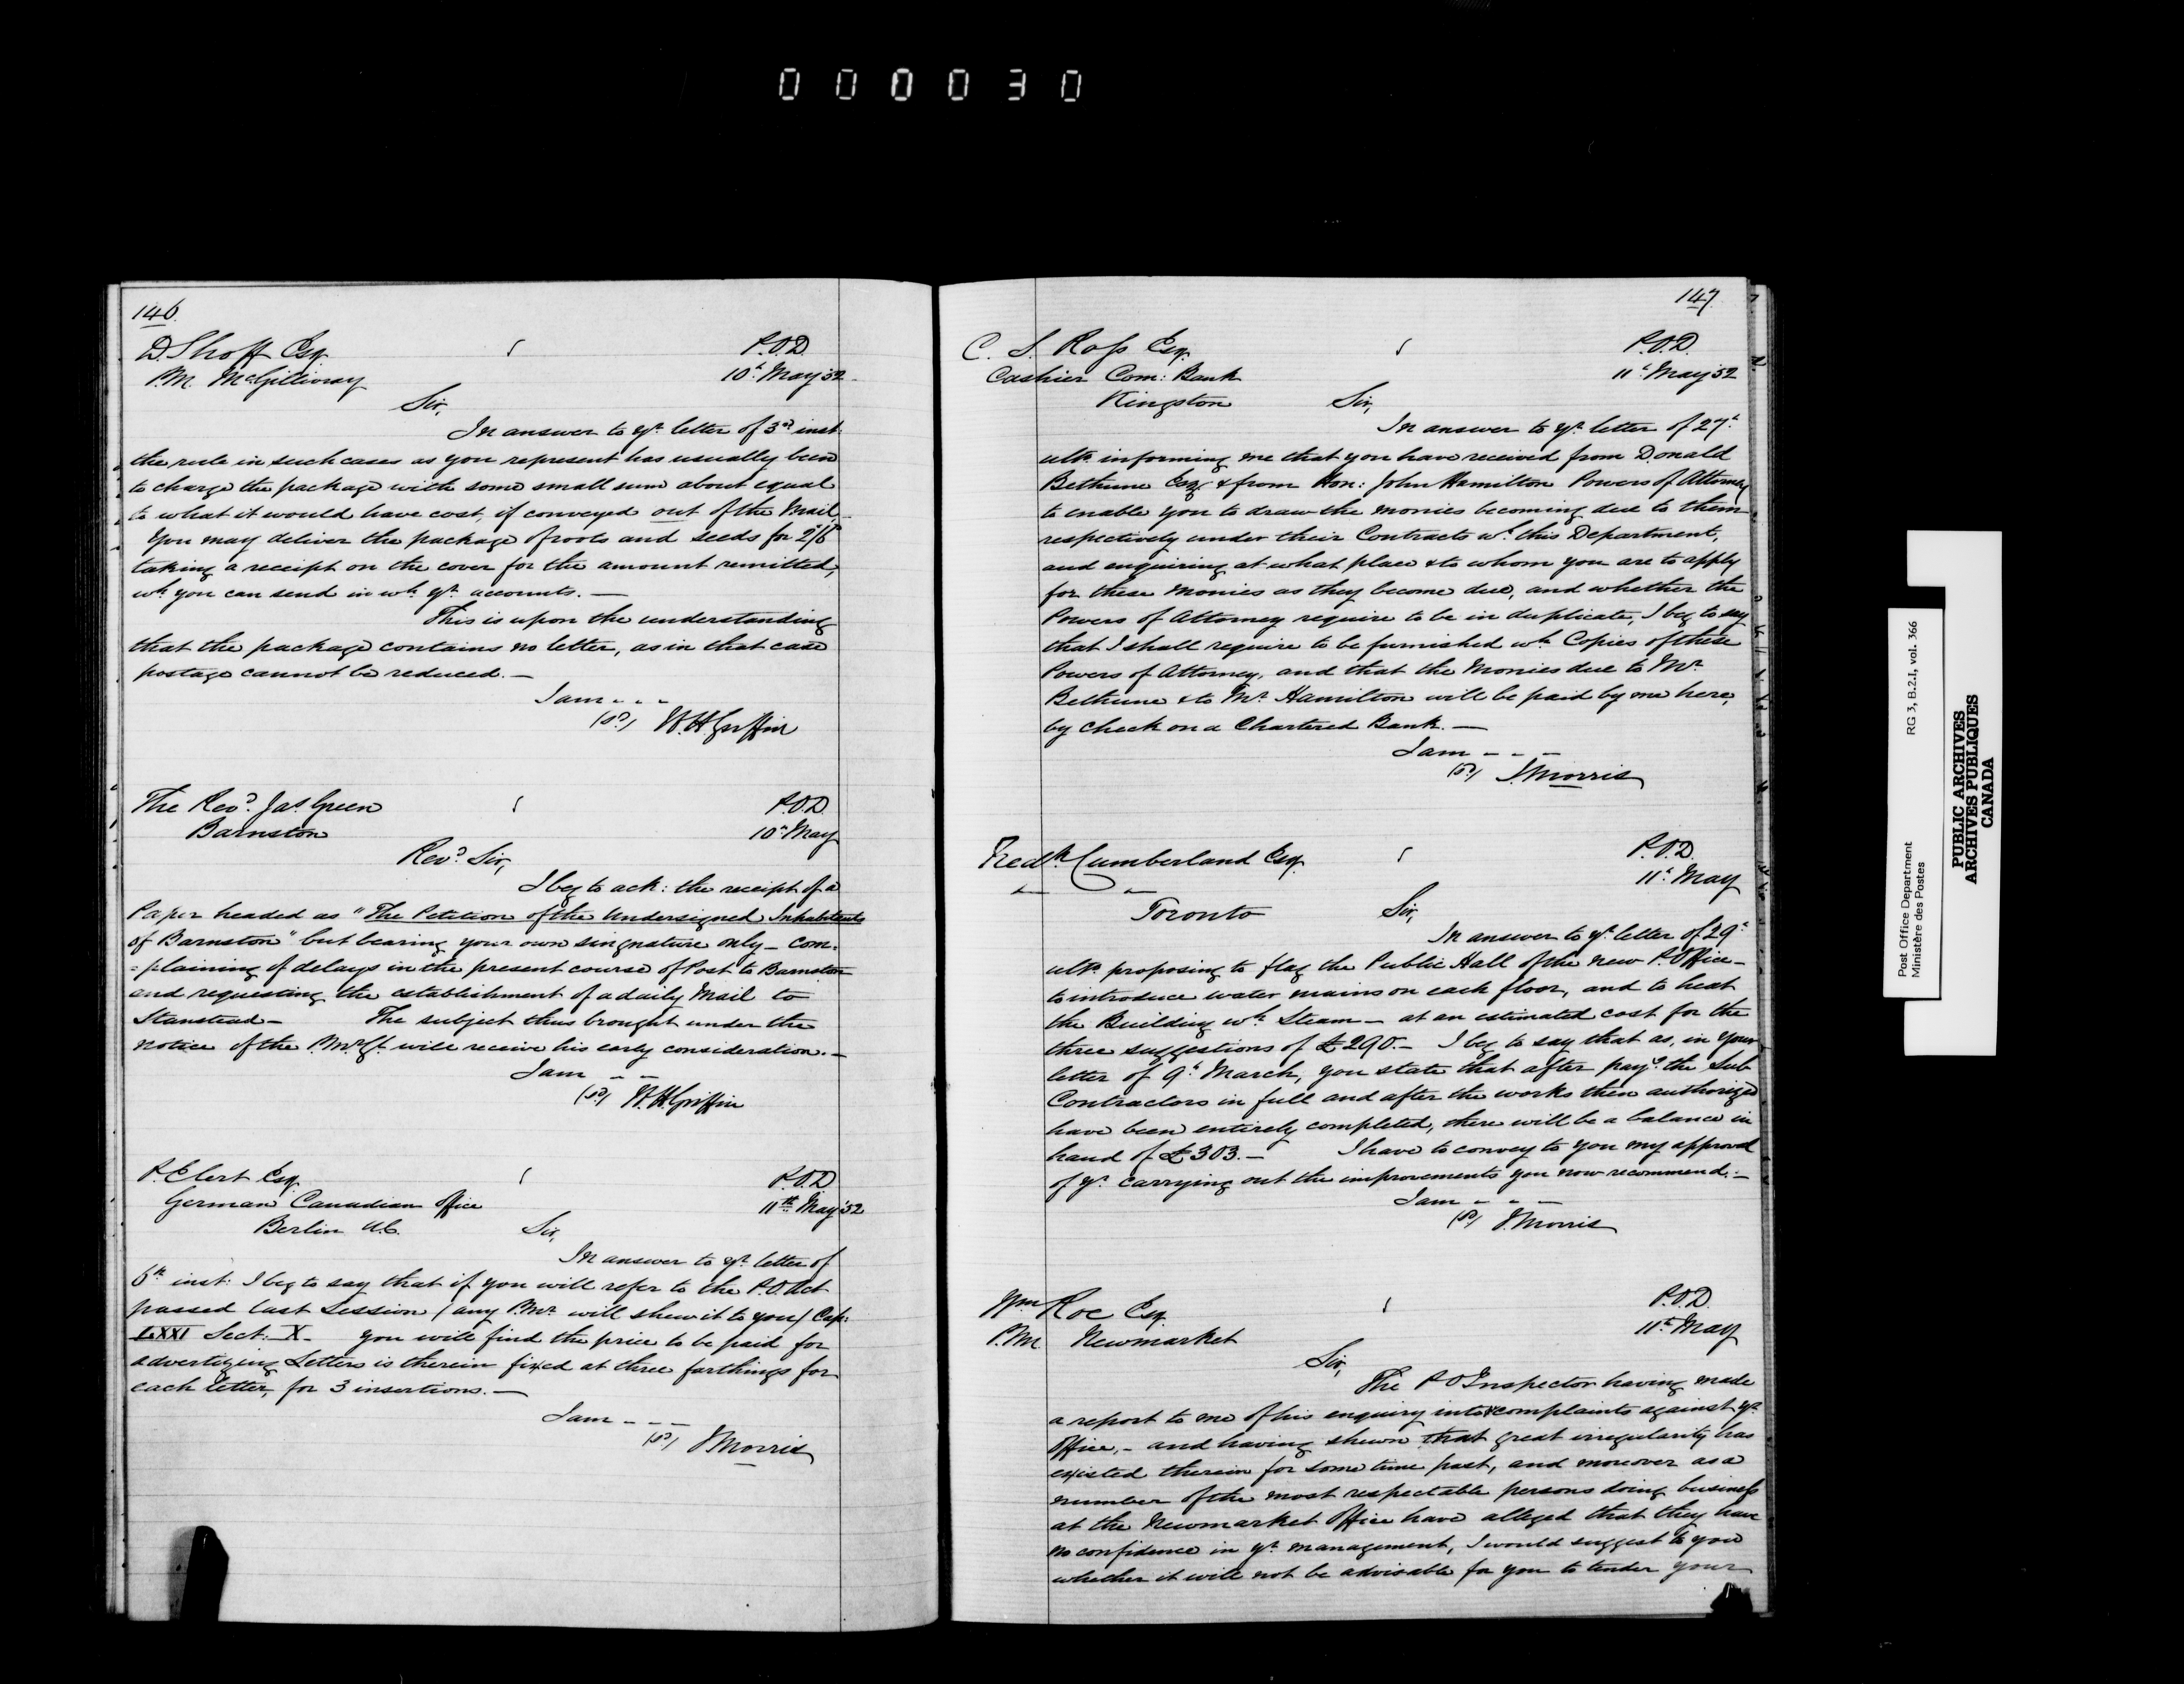 000030
146.
D. Shoff Esq.
P.M. McGillivray
P.O.D.
10th May '52
Sir,
In answer to yr. letter of 3rd inst:
the rule in such cases as you represent has usually been
to charge the package with some small sum about equal
to what it would have cost, if conveyed out of the Mail.
You may deliver the package of roots and seeds for 2/6
taking a receipt on the cover for the amount remitted,
wh. you can send in wh. yr. accounts. —
This is upon the understanding
that the package contains no letter, as in that case
postage cannot be reduced. —
I am - - -
(sd) W.H. Griffin
The Revd. Jas. Green
Barnston
P.O.D.
10th May
Revd. Sir,
I beg to ack: the receipt of a
Paper headed as "The Petition of the Undersigned Inhabitants
of Barnston" but bearing your own singnature only — com-
=plaining of delays in the present course of Post to Barnston
and requesting the establishment of a daily Mail to
Stanstead — The subject thus brought under the
notice of the P.Mr.Gl. will receive his early consideration. —
I am - -
(sd) W.H. Griffin
P. Elert Esq.
German Canadian Office
Berlin U.C.
P.O.D
11th May '52
Sir,
In answer to yr. letter of
6th inst: I beg to say that if you will refer to the P.O. Act
passed last Session (any P.Mr. will shew it to you) Cap:
LXXI Sect: X — you will find the price to be paid for
advertizing Letters is therein fixed at three farthings for
each letter, for 3 insertions. —
I am - - -
(sd) J. Morris
147.
C. S. Ross Esq.
Cashier Com: Bank
Kingston
P.O.D.
11th May '52
Sir,
In answer to yr. letter of 27th
ulto. informing me that you have received from Donald
Bethune Esq. & from Hon: John Hamilton Powers of Attorney
to enable you to draw the monies becoming due to them
respectively under their Contracts wh. this Department,
and enquiring at what place & to whom you are to apply
for these monies as they become due, and whether the
Powers of Attorney require to be in duplicate, I beg to say
that I shall require to be furnished wh. Copies of these
Powers of Attorney, and that the Monies due to Mr.
Bethune & to Mr. Hamilton will be paid by me here,
by check on a Chartered Bank. —
I am - - -
(sd) J. Morris
Fredk. Cumberland Esq.
Toronto
P.O.D.
11th May
Sir,
In answer to yr. letter of 29th
ulto. proposing to flag the Public Hall of the new P. Office —
to introduce water mains on each floor, and to heat
the Building wh. Steam — at an estimated cost for the
three suggestions of £290. — I beg to say that as, in your
letter of 9th March, you state that after payg. the Sub
Contractors in full and after the works then authorized
have been entirely completed, there will be a balance in
hand of £303. — I have to convey to you my approval
of yr. carrying out the improvements you now recommend. —
I am - - -
(sd) J. Morris
Wm. Roe Esq.
P.M. Newmarket
P.O.D.
11th May
Sir,
The P O Inspector having made
a report to me of his enquiry into complaints against yr.
Office, — and having shewn that great irregularity has
existed therein for some time past, and moreover as a
number of the most respectable persons doing business
at the Newmarket Office have alleged that they have
no confidence in yr. management, I would suggest to you
whether it will not be advisable for you to tender your
Post Office Department
Ministère des Postes
RG 3, B.2.I, vol. 366
PUBLIC ARCHIVES
ARCHIVES PUBLIQUES
CANADA